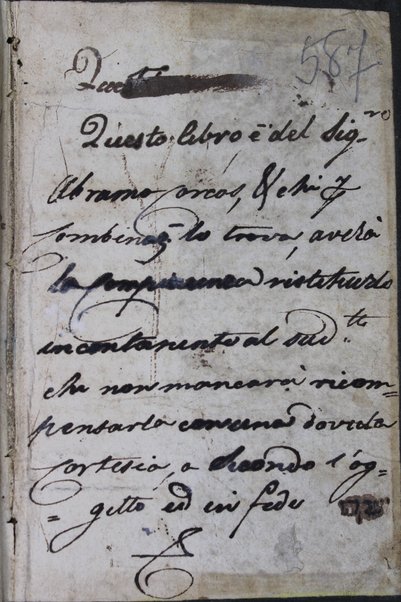 587
Questo
Questo libro è del Sig.ro
Abramo Corcos, & chi p
combinaz. lo trova, averà
la compiacenza ristituirlo
incontanente al sud.tto
che non mancarà ricom=
pensarla con una dovuta
cortesia, a secondo l'og=
=getto ed in fede